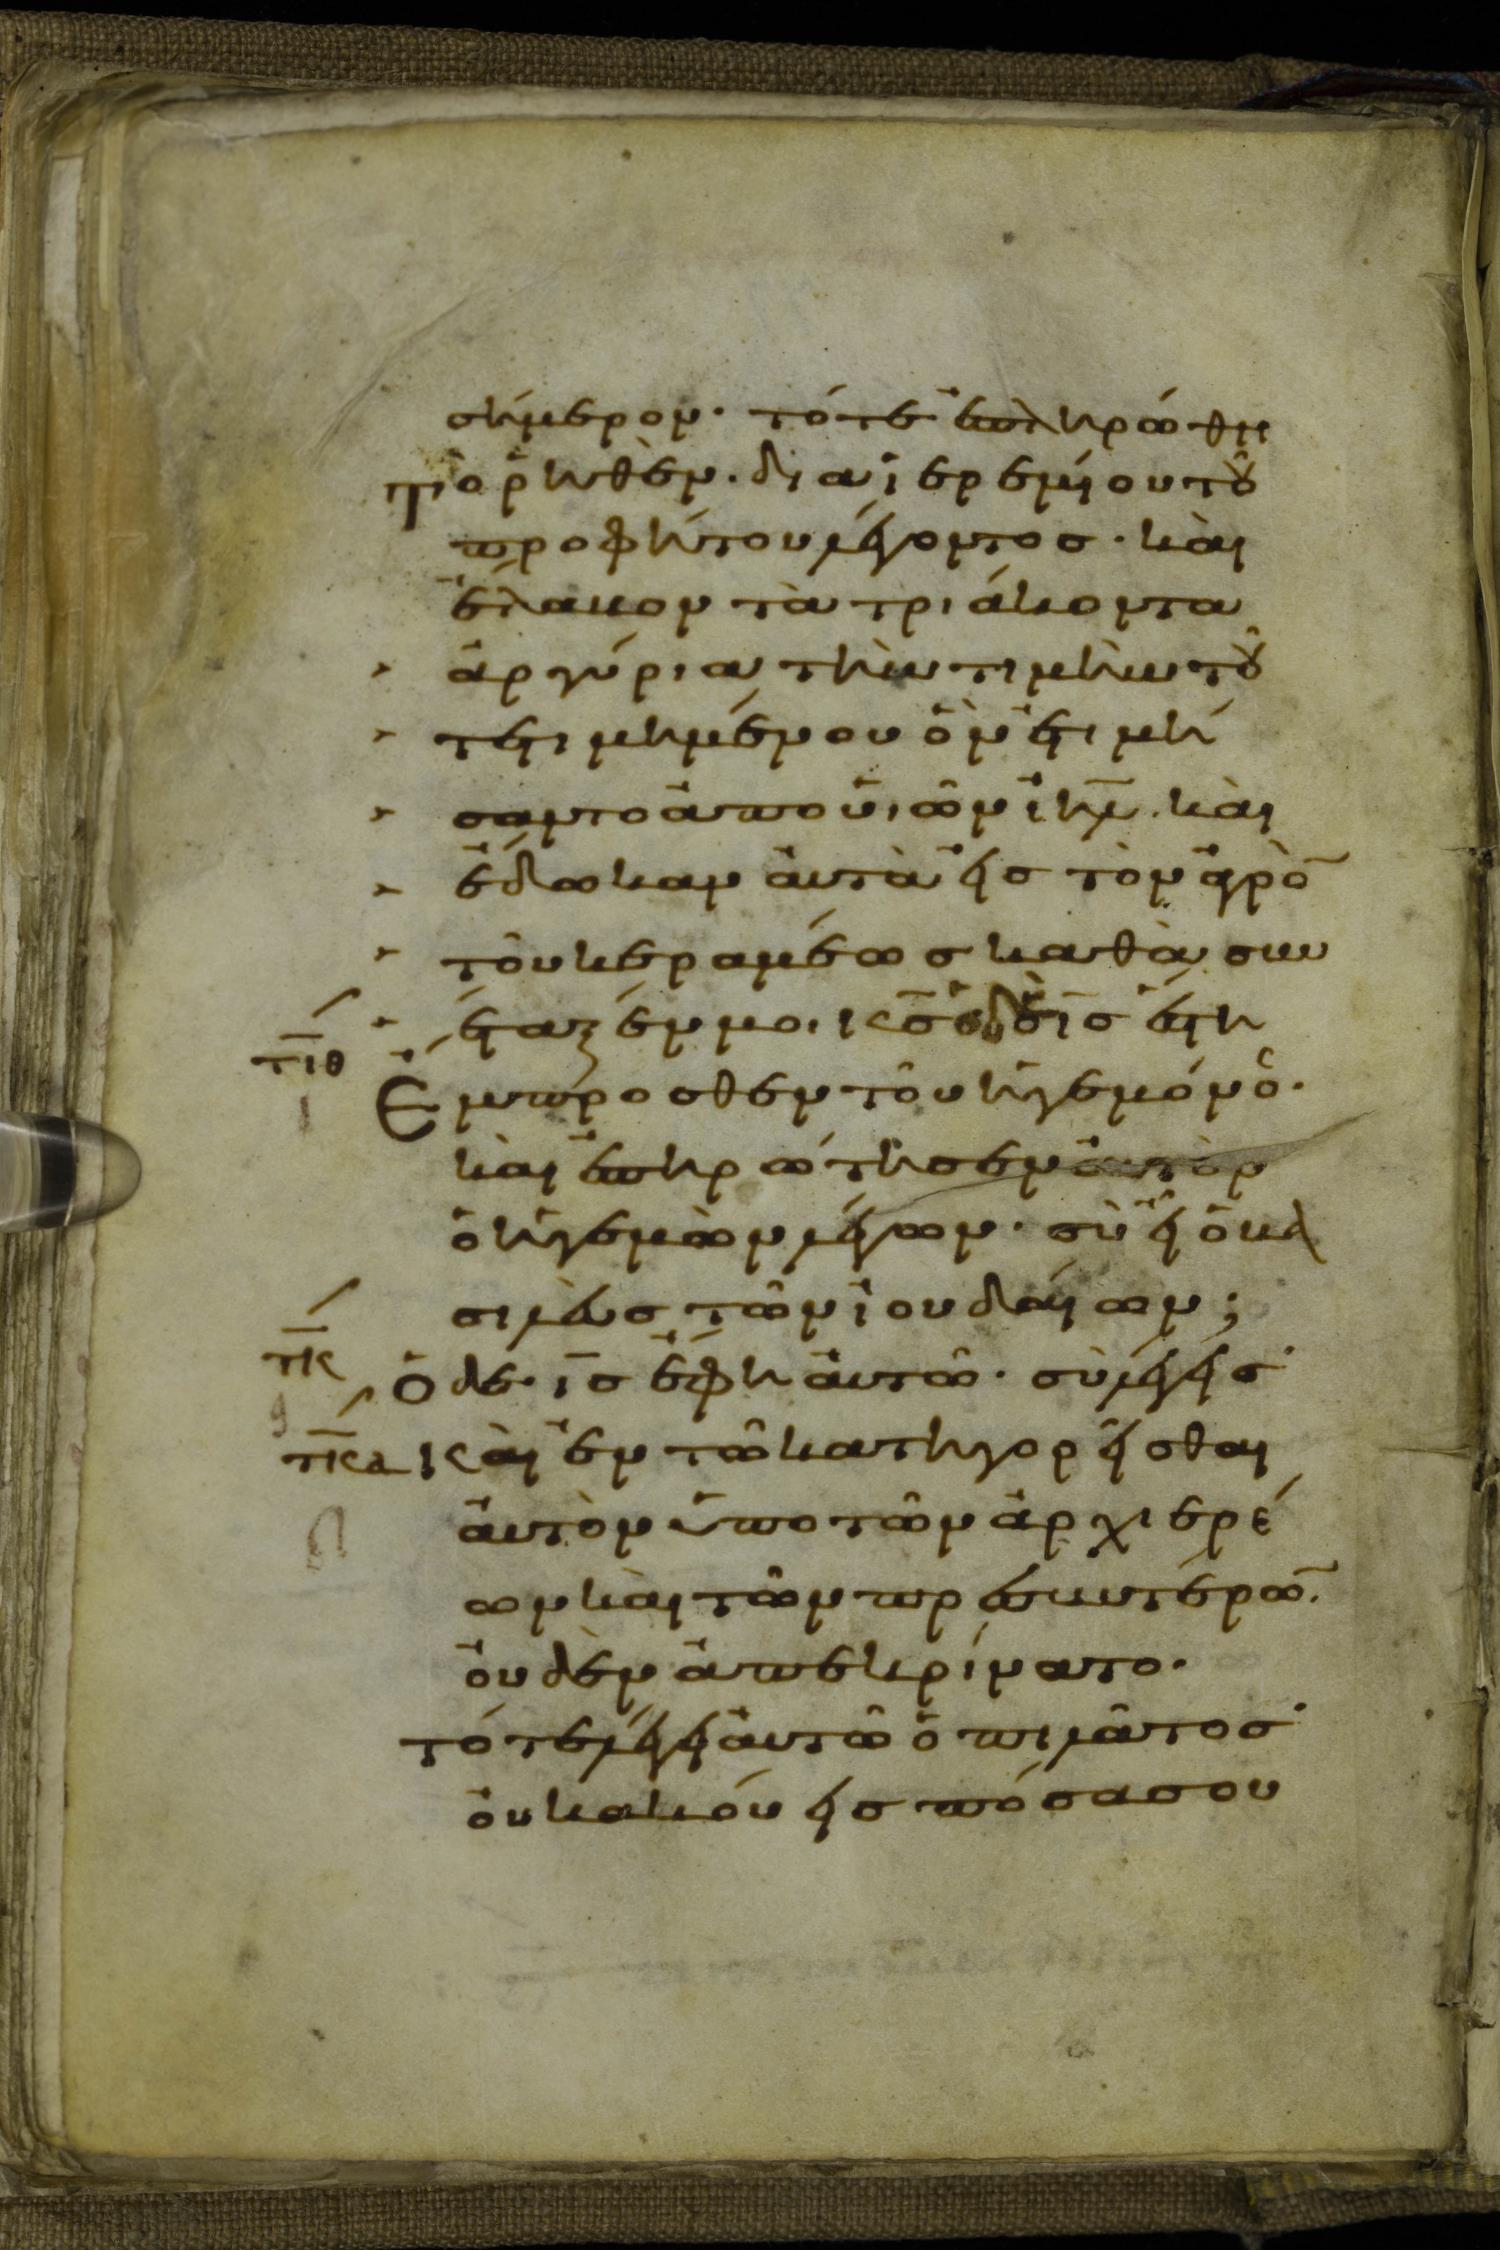 σήμερον· τότε ἐπληρώθη
τὸ ῥηθὲν· δια ἱερεμίου τοῦ
προφήτου λέγοντος· καὶ
ἔλαβον τὰ τριάκοντα
ἀργύρια τὴν τιμὴν τοῦ
τετιμημένου ὃν ἐτιμή
σαντο ἀπο υἱῶν ιηλ̅· καὶ
ἔδωκαν ἀυτὰ εἰς τὸν ἀγρὸ̅
τοῦ κεραμέως καθὰ συν
έταξέν μοι κ̅ς̅ ὁ δὲ ι̅ς̅ ἔστη
τ̅ι̅θ̅ Ἔμπροσθεν τοῦ ἡγεμόνος·
ι
καὶ ἐπηρώτησεν ἀυτὸν
ὁ ἡγεμὼν λέγων· σὺ εἶ ὁ βα
σιλεὺς τῶν ἰουδαίων;
τ̅κ̅ Ὁ δε ι̅ς̅ ἔφη ἀυτῶ· σὺ λέγεις·
τ̅κ̅α̅ καὶ ἐν τῶ κατηγορεῖσθαι
ἀυτὸν ὑπο τῶν ἀρχιερέ
ων καὶ τῶν πρεσβυτέρω̅·
ὀυδὲν ἀπεκρίνατο·
τότε λέγει ἀυτῶ ὁ πιλᾶτος·
ὀυκ ακούεις πόσα σου